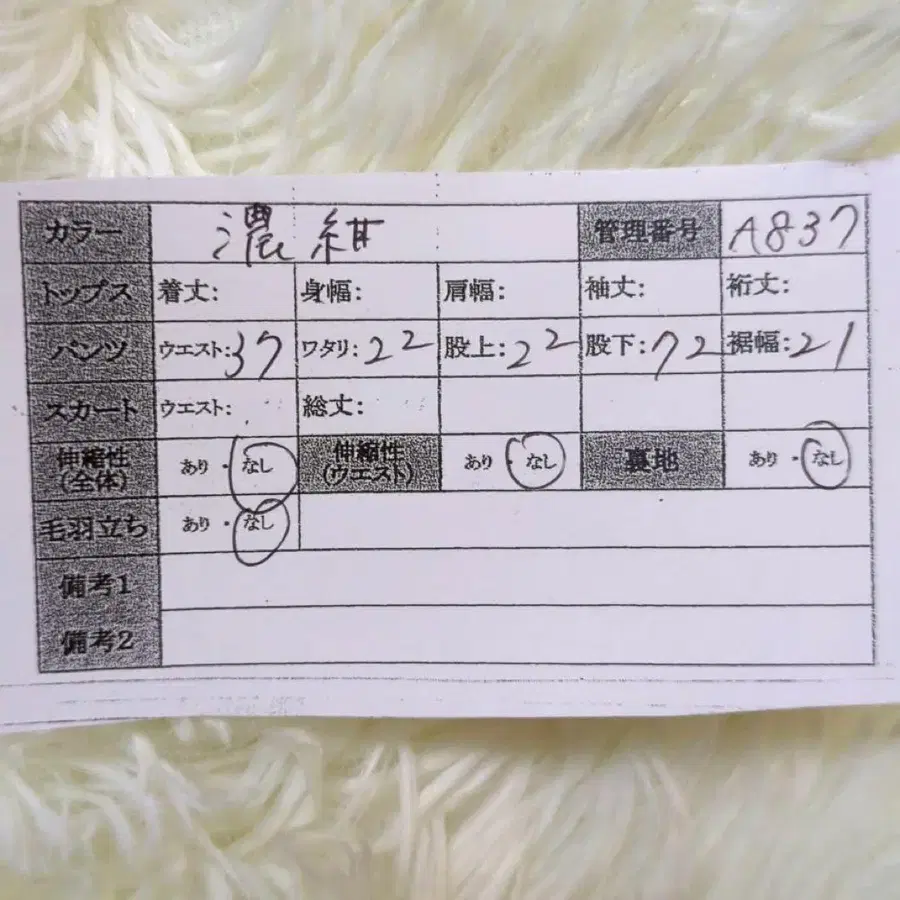 カラー 濃紺 管理番号 A837
トップス 着丈: 身幅: 肩幅: 袖丈: 裄丈:
パンツ ウエスト:37 ワタリ:22 股上:22 股下:72 裾幅:21
スカート ウエスト: 総丈:
伸縮性(全体) あり・なし 伸縮性(ウエスト) あり・なし 裏地 あり・なし
毛羽立ち あり・なし
備考1
備考2